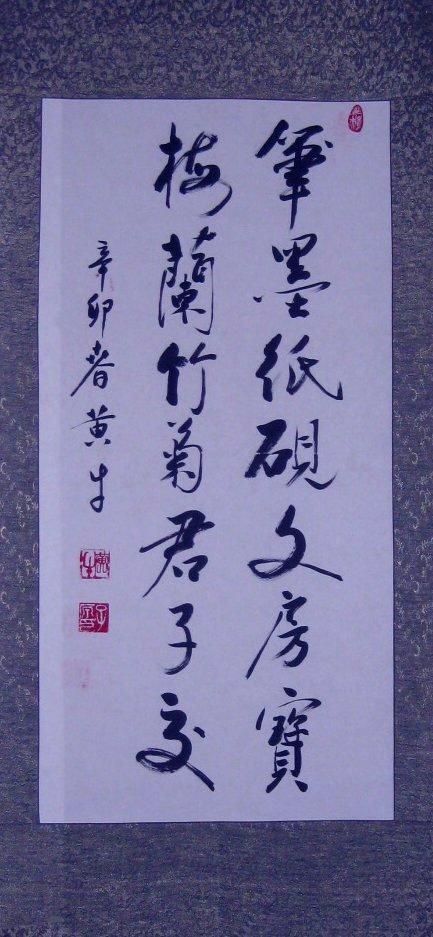 筆墨紙硯文房寶
梅蘭竹菊君子交
辛卯春黄牛